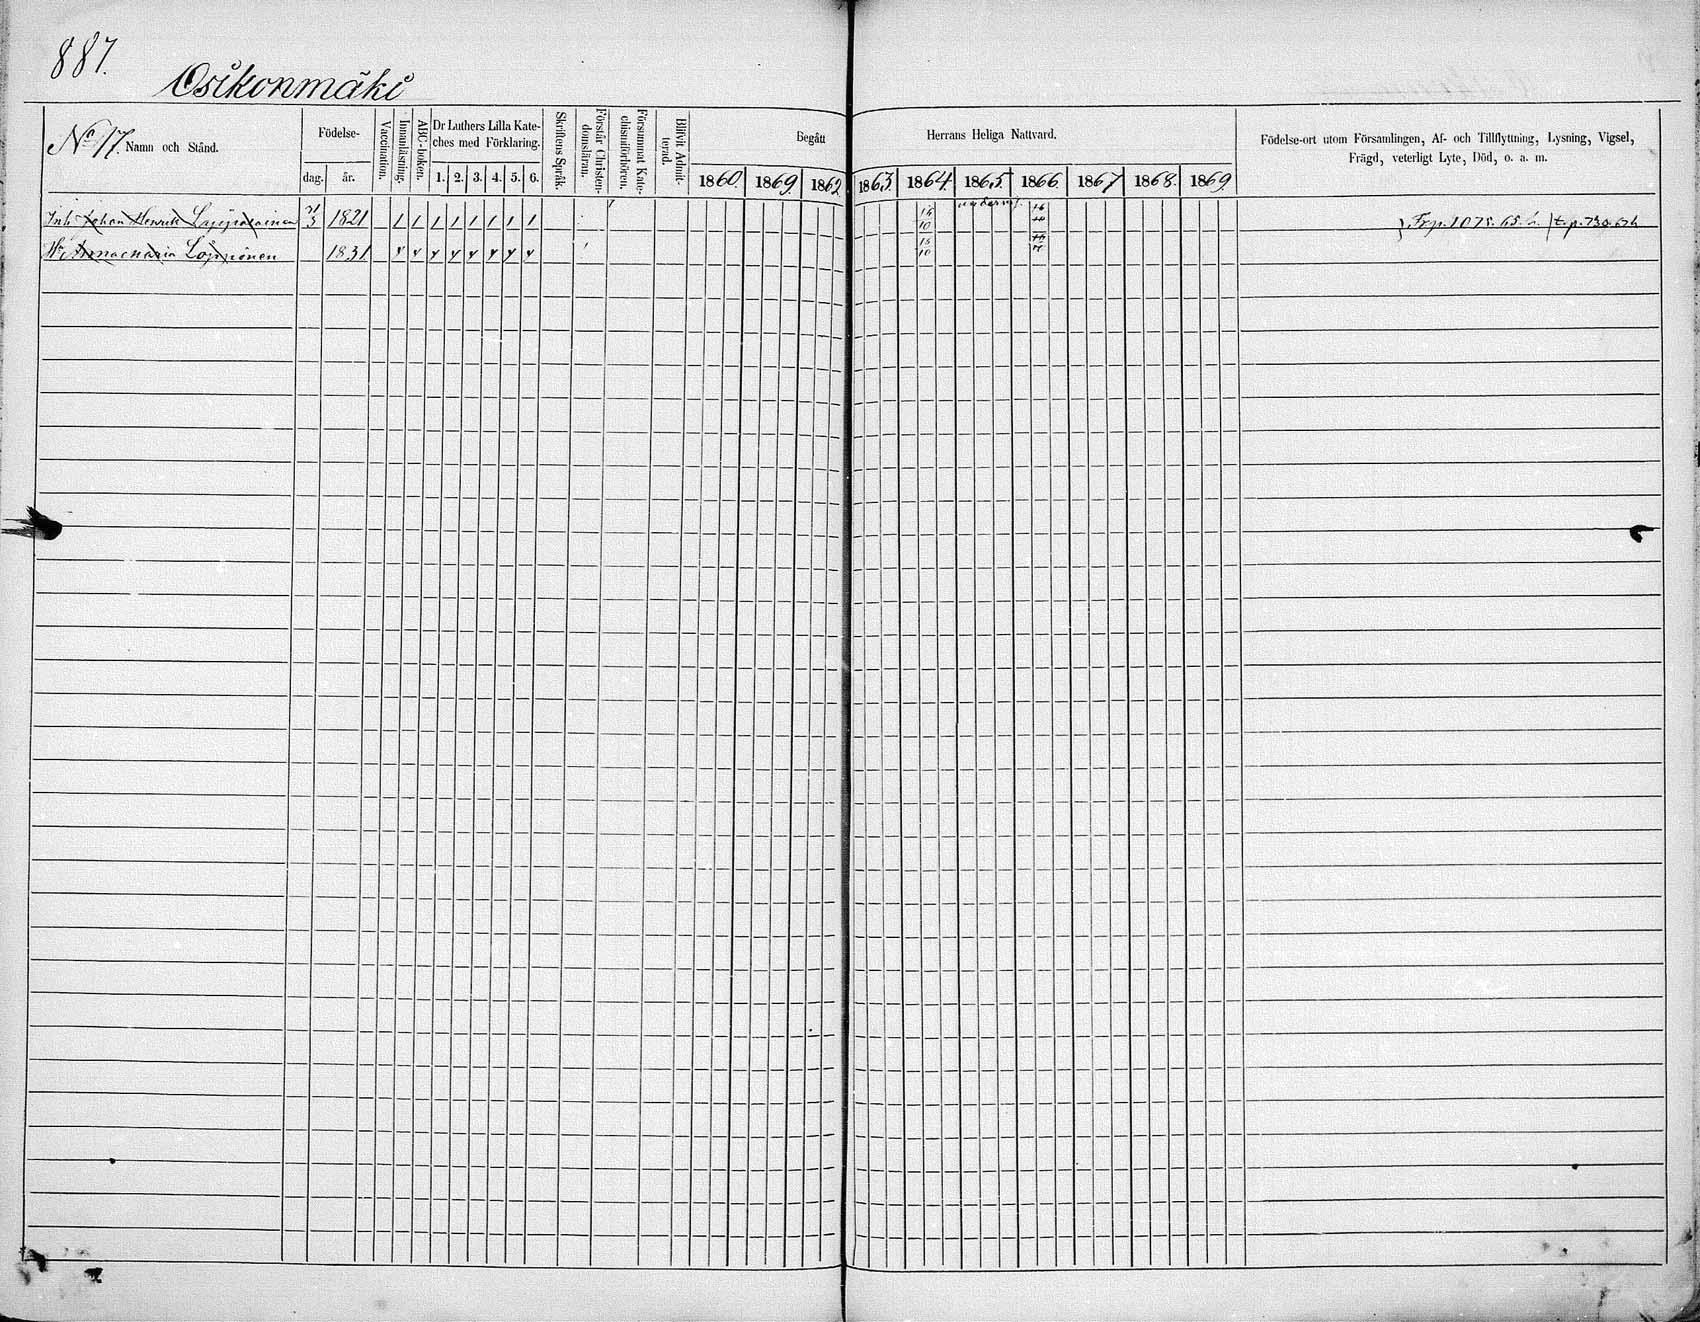 887.
Osikonmäki
No 17. Namn och Stånd.
Födelse-
dag. år.
Vaccination.
Innanläsning.
ABC-boken.
Dr Luthers Lilla Kate-
ches med Förklaring.
1. 2. 3. 4. 5. 6.
Skriftens Språk.
Förstår Christen-
domsläran.
Försummat Kate-
chismiförhören.
Blifvit Admit-
terad.
Begått Herrans Heliga Nattvard.
1860. 1869. 1862 1863. 1864 1865. 1866. 1867 1868. 1869
Födelse-ort utom Församlingen, Af- och Tillflyttning, Lysning, Vigsel,
Frägd, veterligt Lyte, Död, o. a. m.
Inh. Johan Henrik 31/3 1821 16/10 Frp. 1075. 65.
Anna Maria Löppönen 1831 16/10